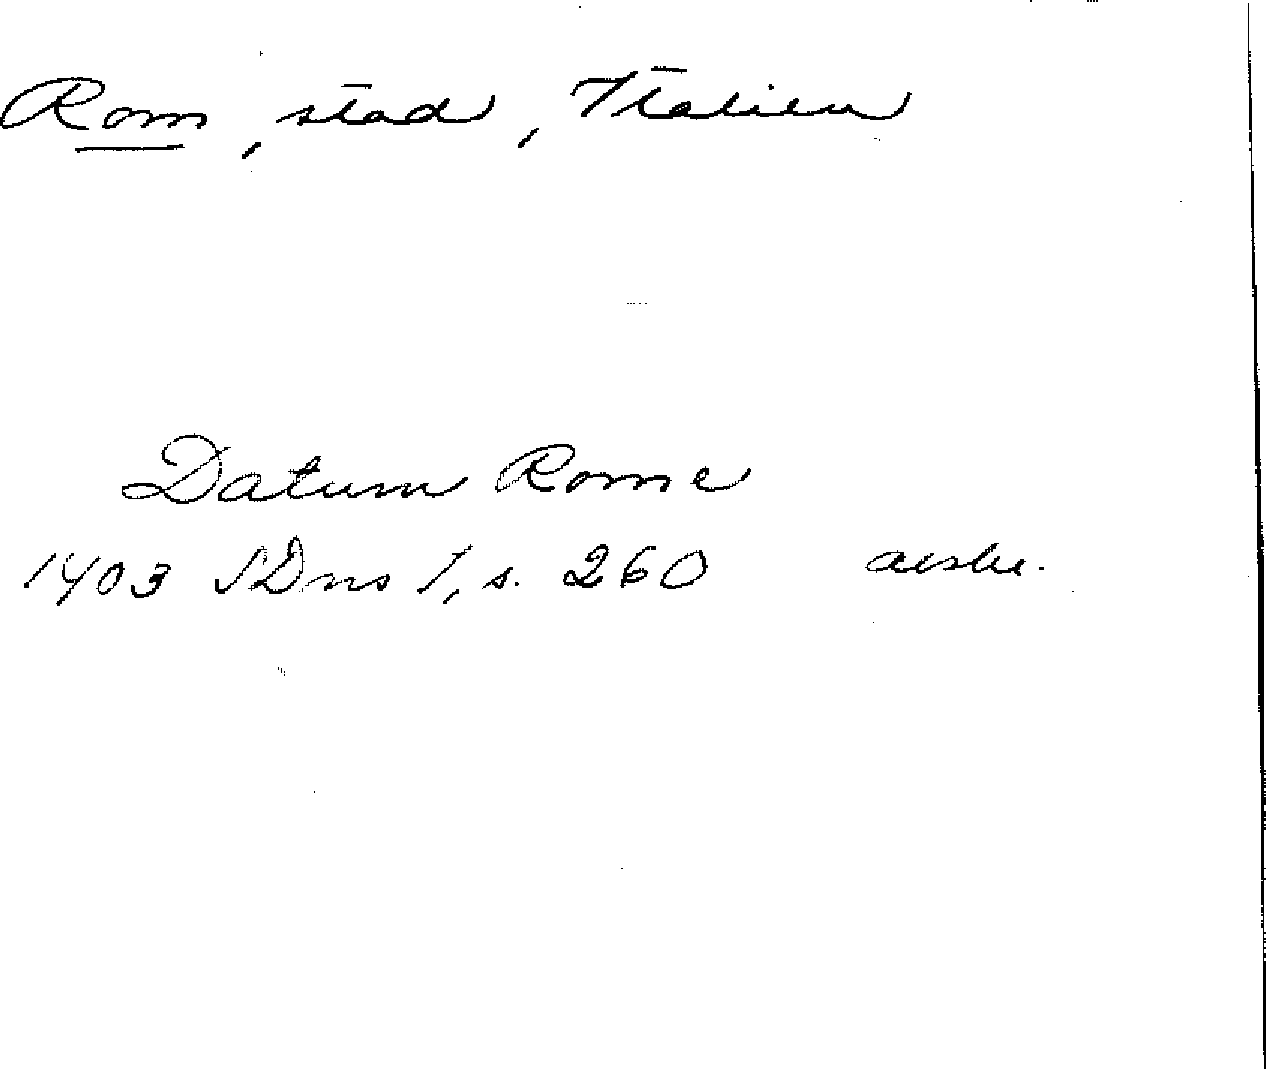 Rom, stad, Italien
Datum Rome
1403 SDns 1, s. 260 avskr.